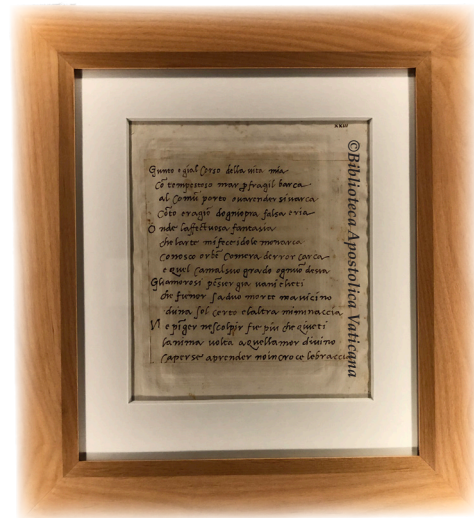 XXIIII
Giunto e gial Corso della vita mia
Cō tempestoso mar p fragil barca
al Comū porto ovarender sivarca
Cōto eragiō dogniopra falsa eria
Onde laffectuosa fantasia
che larte mi fece idole monarca
Conosco orbē Comera deror carca
e quel Camalsuo grado ogniuō desia
Gliamorosi pēsier gia vani elieti
che fienor saduo morte mavicino
duna sol Certo elaltra miminaccia
Ne pīger nescolpir fie piu che quieti
lanima volta aquellamor divino
Caperse aprender noi incroce lebraccia
©Biblioteca Apostolica Vaticana